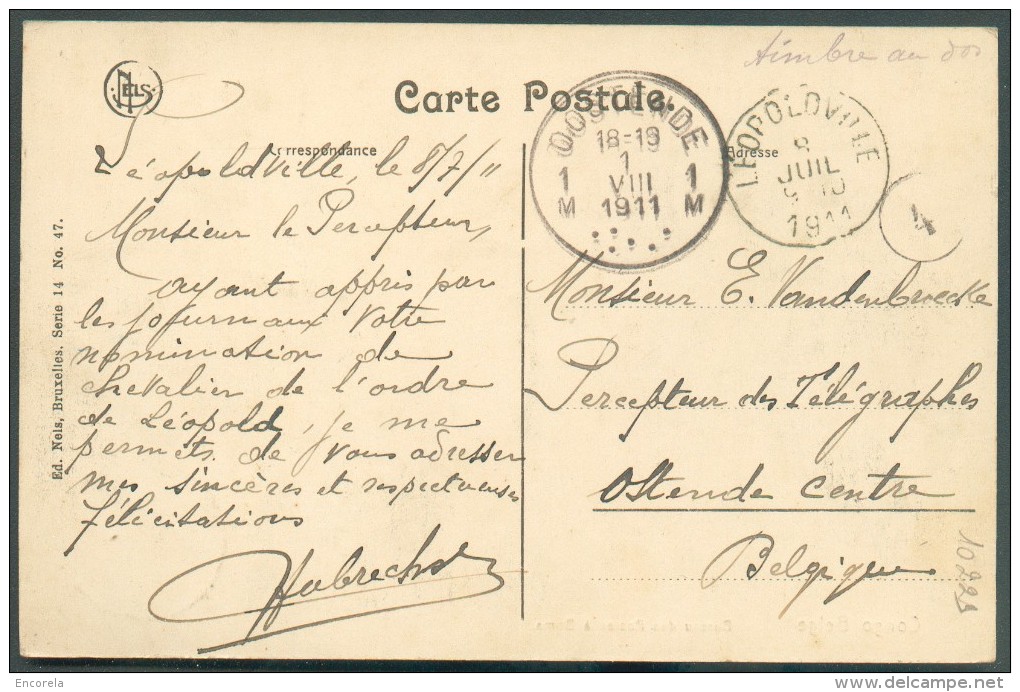 timbre au dos
NELS
Carte Postale.
Correspondance
Adresse
OOSTENDE
18-19
1
1 VIII 1
M 1911 M
LEOPOLDVILLE
8
JUIL
9-10
1911
4
Léopoldville, le 8/7/11
Monsieur le Percepteur,
ayant appris par
les journaux votre
nomination de
chevalier de l'ordre
de Léopold, je me
permets de vous adresser
mes sincères et respectueuses
félicitations
Hubrecht
Monsieur E. Vandenbroecke
Percepteur des Télégraphes
Ostende Centre
Belgique
Ed. Nels, Bruxelles. Serie 14 No. 47.
Congo Belge
© Encorela
www.delcampe.net